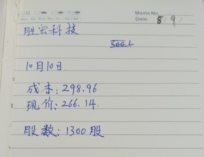 Date: 8. 9.
胜宏科技
300.1
10月10日
成本:298.96
现价:266.14.
股数:1300股